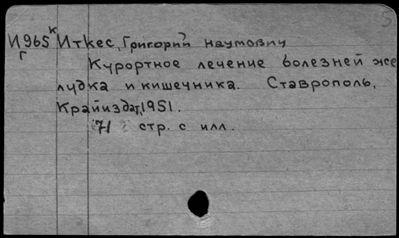 И965к Иткес, Григорий Наумович
г Курортное лечение болезней же
лудка и кишечника. Ставрополь,
Крайиздат, 1951.
71 стр. с илл.